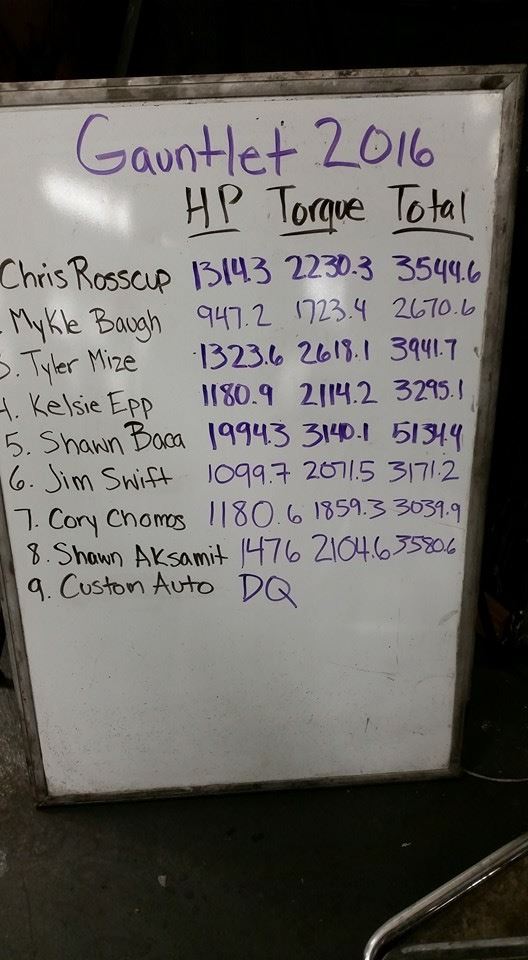 Gauntlet 2016
HP Torque Total
Chris Rosscup 1314.3 2230.3 3544.6
Mykle Baugh 947.2 1723.4 2670.6
3. Tyler Mize 1323.6 2618.1 3941.7
4. Kelsie Epp 1180.9 2114.2 3295.1
5. Shawn Baca 1994.3 3140.1 5134.4
6. Jim Swift 1099.7 2071.5 3171.2
7. Cory Chomos 1180.6 1859.3 3039.9
8. Shawn Aksamit 1476 2104.6 3580.6
9. Custom Auto DQ